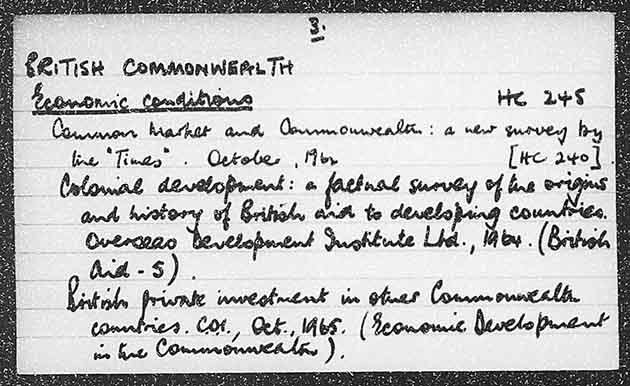 3.
BRITISH COMMONWEALTH
Economic conditions HC 245
Common Market and Commonwealth: a new survey by
the "Times". October, 1962 [HC 240]
Colonial development: a factual survey of the origins
and history of British aid to developing countries.
Overseas Development Institute Ltd., 1964. (British
Aid - 5).
British private investment in other Commonwealth
countries. COI, Oct., 1965. (Economic Development
in the Commonwealth).